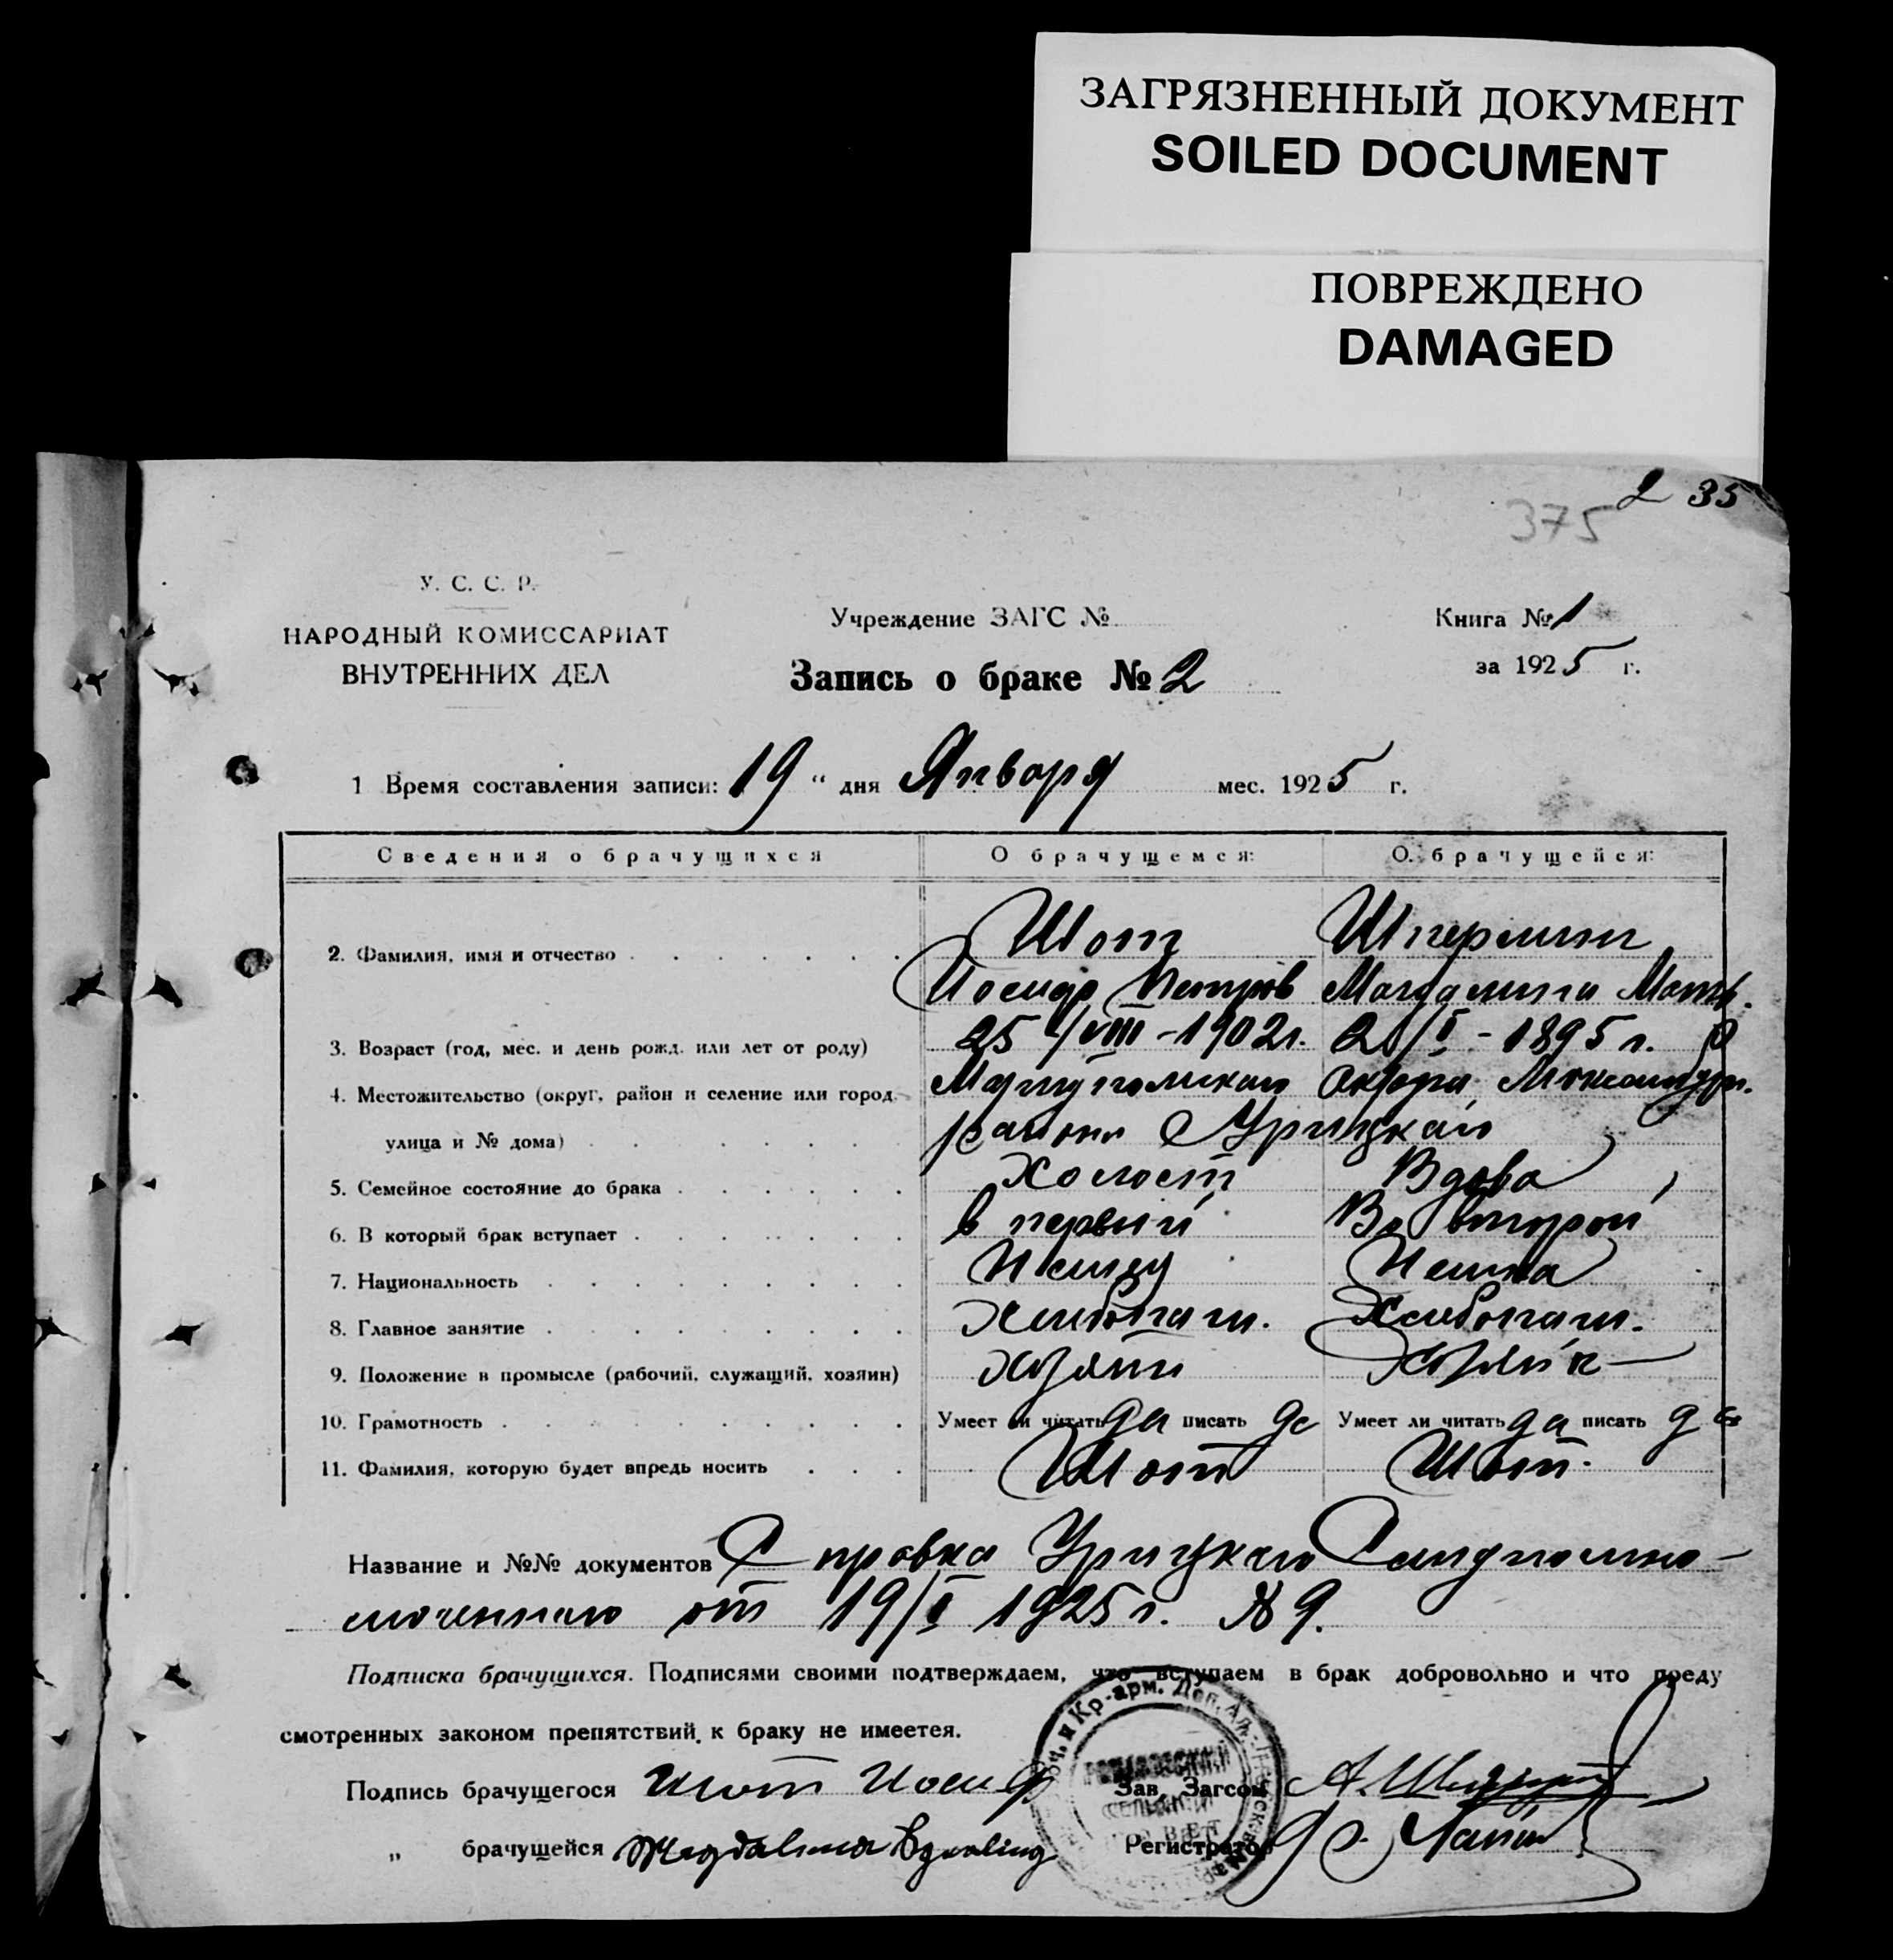 ЗАГРЯЗНЕННЫЙ ДОКУМЕНТ
SOILED DOCUMENT
ПОВРЕЖДЕНО
DAMAGED
2 35
375
У. С. С. Р.
НАРОДНЫЙ КОМИССАРИАТ
ВНУТРЕННИХ ДЕЛ
Учреждение ЗАГС №
Запись о браке № 2
Книга № 1
за 1925 г.
1 Время составления записи: 19 " дня Января мес. 1925 г.
Сведения о брачущихся О брачущемся: О брачущейся:
2. Фамилия, имя и отчество Шот Шперлинг
Иосиф Петров Магдалина Матв.
3. Возраст (год, мес. и день рожд. или лет от роду) 25/VIII-1902г. /I-1895 г.
4. Местожительство (округ, район и селение или город, Мариупольского Округа
улица и № дома) района Урицкаго
5. Семейное состояние до брака Холост Вдова
6. В который брак вступает в первый Во второй
7. Национальность Немец Немка
8. Главное занятие Хлибопаш. Хлибопаш.
9. Положение в промысле (рабочий, служащий, хозяин) хозяин
10. Грамотность Умеет ли читать да писать да Умеет ли читать да писать да
11. Фамилия, которую будет впредь носить Шот Шот.
Название и №№ документов Справка Урицкаго
от 19/I 1925 г. № 9.
Подписка брачущихся. Подписями своими подтверждаем, что вступаем в брак добровольно и что преду
смотренных законом препятствий к браку не имеется.
Подпись брачущегося Шот Иосиф Зав. Загсом
" брачущейся Magdalina Регистратор